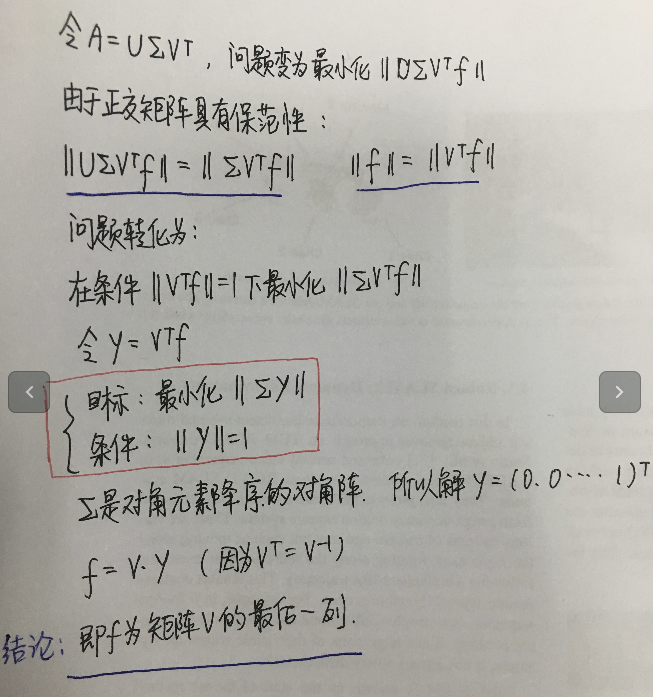 令A=UΣVᵀ, 问题变为最小化 ||UΣVᵀf||
由于正交矩阵具有保范性:
||UΣVᵀf|| = || ΣVᵀf||    ||f|| = ||Vᵀf||
问题转化为:
在条件 ||Vᵀf||=1下最小化 ||ΣVᵀf||
令 y = Vᵀf
目标: 最小化 || Σy||
条件: || y||=1
Σ是对角元素降序的对角阵. 所以解 y = (0.0····1)ᵀ
f = V·y (因为Vᵀ=V⁻¹)
结论: 即f为矩阵V的最后一列.